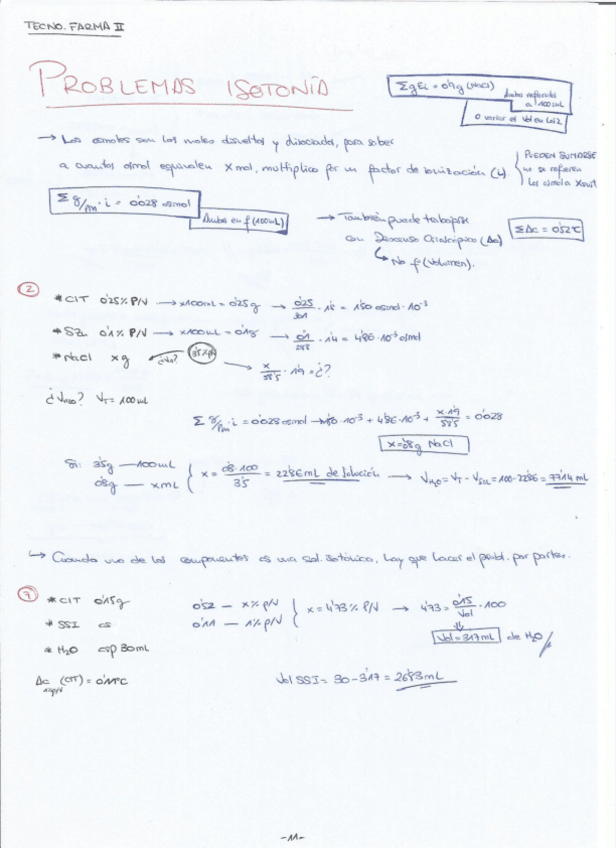 TECNO. FARMA II
PROBLEMAS ISOTONÍA
Σg Ei = 0'9g (NaCl)
Ambos referidos
a 100mL
O variar el Vol en los 2
→ Los osmoles son los moles disueltos y disociados, para saber
a cuantos osmol equivalen X mol, multiplico por un factor de ionización (i)
PUEDEN SUMARSE
no se refieren
Σ g/Pm · i = 0'028 osmol
Ambos en f(100mL)
→ También puede trabajarse
con Descenso Crioscópico (Δc)
ΣΔc = 0'52°C
↳ No f(Volumen).
② * CIT 0'25% P/V → x100mL = 0'25g → 0'25/301 · 1'8 = 1'50 osmol · 10⁻³
* SZn 0'1% P/V → x100mL = 0'1g → 0'1/288 · 1'4 = 4'86 · 10⁻⁴ osmol
* NaCl xg ¿Vn? 3'5% P/V → x/58'5 · 1'9 = ¿?
¿VH2O? VT = 100mL
Σ g/Pm · i = 0'028 osmol → 1'50 · 10⁻³ + 4'86 · 10⁻⁴ + x · 1'9/58'5 = 0'028
x = 0'8g NaCl
Si: 3'5g — 100mL
0'8g — x mL
x = 0'8 · 100/3'5 = 22'86 mL de solución → VH2O = VT − VSOL = 100 − 22'86 = 77'14 mL
↳ Cuando uno de los componentes es una sol. isotónica, hay que hacer el probl. por partes.
⑦ * CIT 0'15g
* SSI cs
* H2O csp 30mL
0'52 — x% P/V
0'11 — 1% P/V
x = 4'73% P/V → 4'73 = 0'15/Vol · 100
Vol = 3'17 mL de H2O
Δc 1% P/V (CIT) = 0'11°C
Vol SSI = 30 − 3'17 = 26'83 mL
-11-